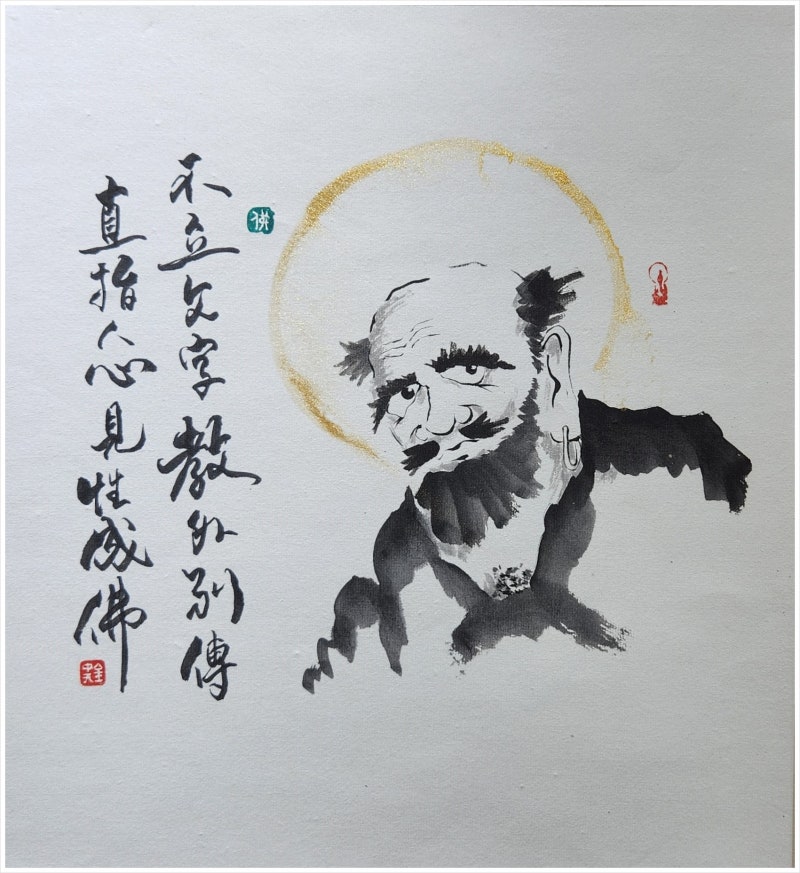 不立文字教外別傳
直指人心見性成佛